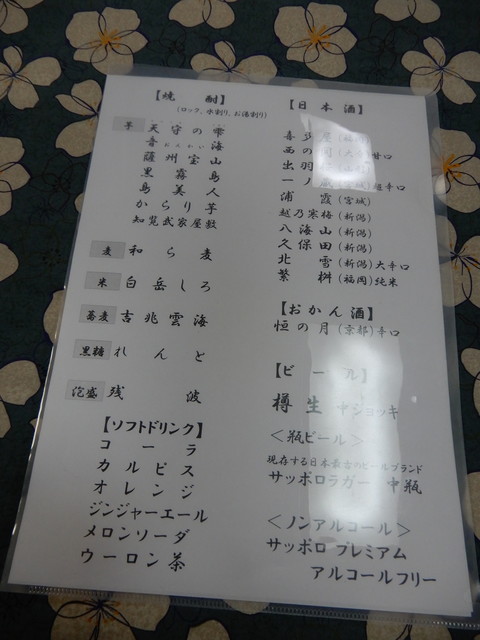 【焼酎】
(ロック、水割り、お湯割り)
芋 天守の雫
音海
薩州宝山
黒霧島
島美人
からり芋
知覧武家屋敷
麦 和ら麦
米 白岳しろ
蕎麦 吉兆雲海
黒糖 れんと
泡盛 残波
【ソフトドリンク】
コーラ
カルピス
オレンジ
ジンジャーエール
メロンソーダ
ウーロン茶
【日本酒】
喜多屋
西の関 甘口
出羽
一ノ蔵 超辛口
浦霞(宮城)
越乃寒梅(新潟)
八海山(新潟)
久保田(新潟)
北雪(新潟)大辛口
繁桝(福岡)純米
【おかん酒】
恒の月(京都)辛口
【ビール】
樽生 中ジョッキ
<瓶ビール>
現存する日本最古のビールブランド
サッポロラガー 中瓶
<ノンアルコール>
サッポロ プレミアム
アルコールフリー